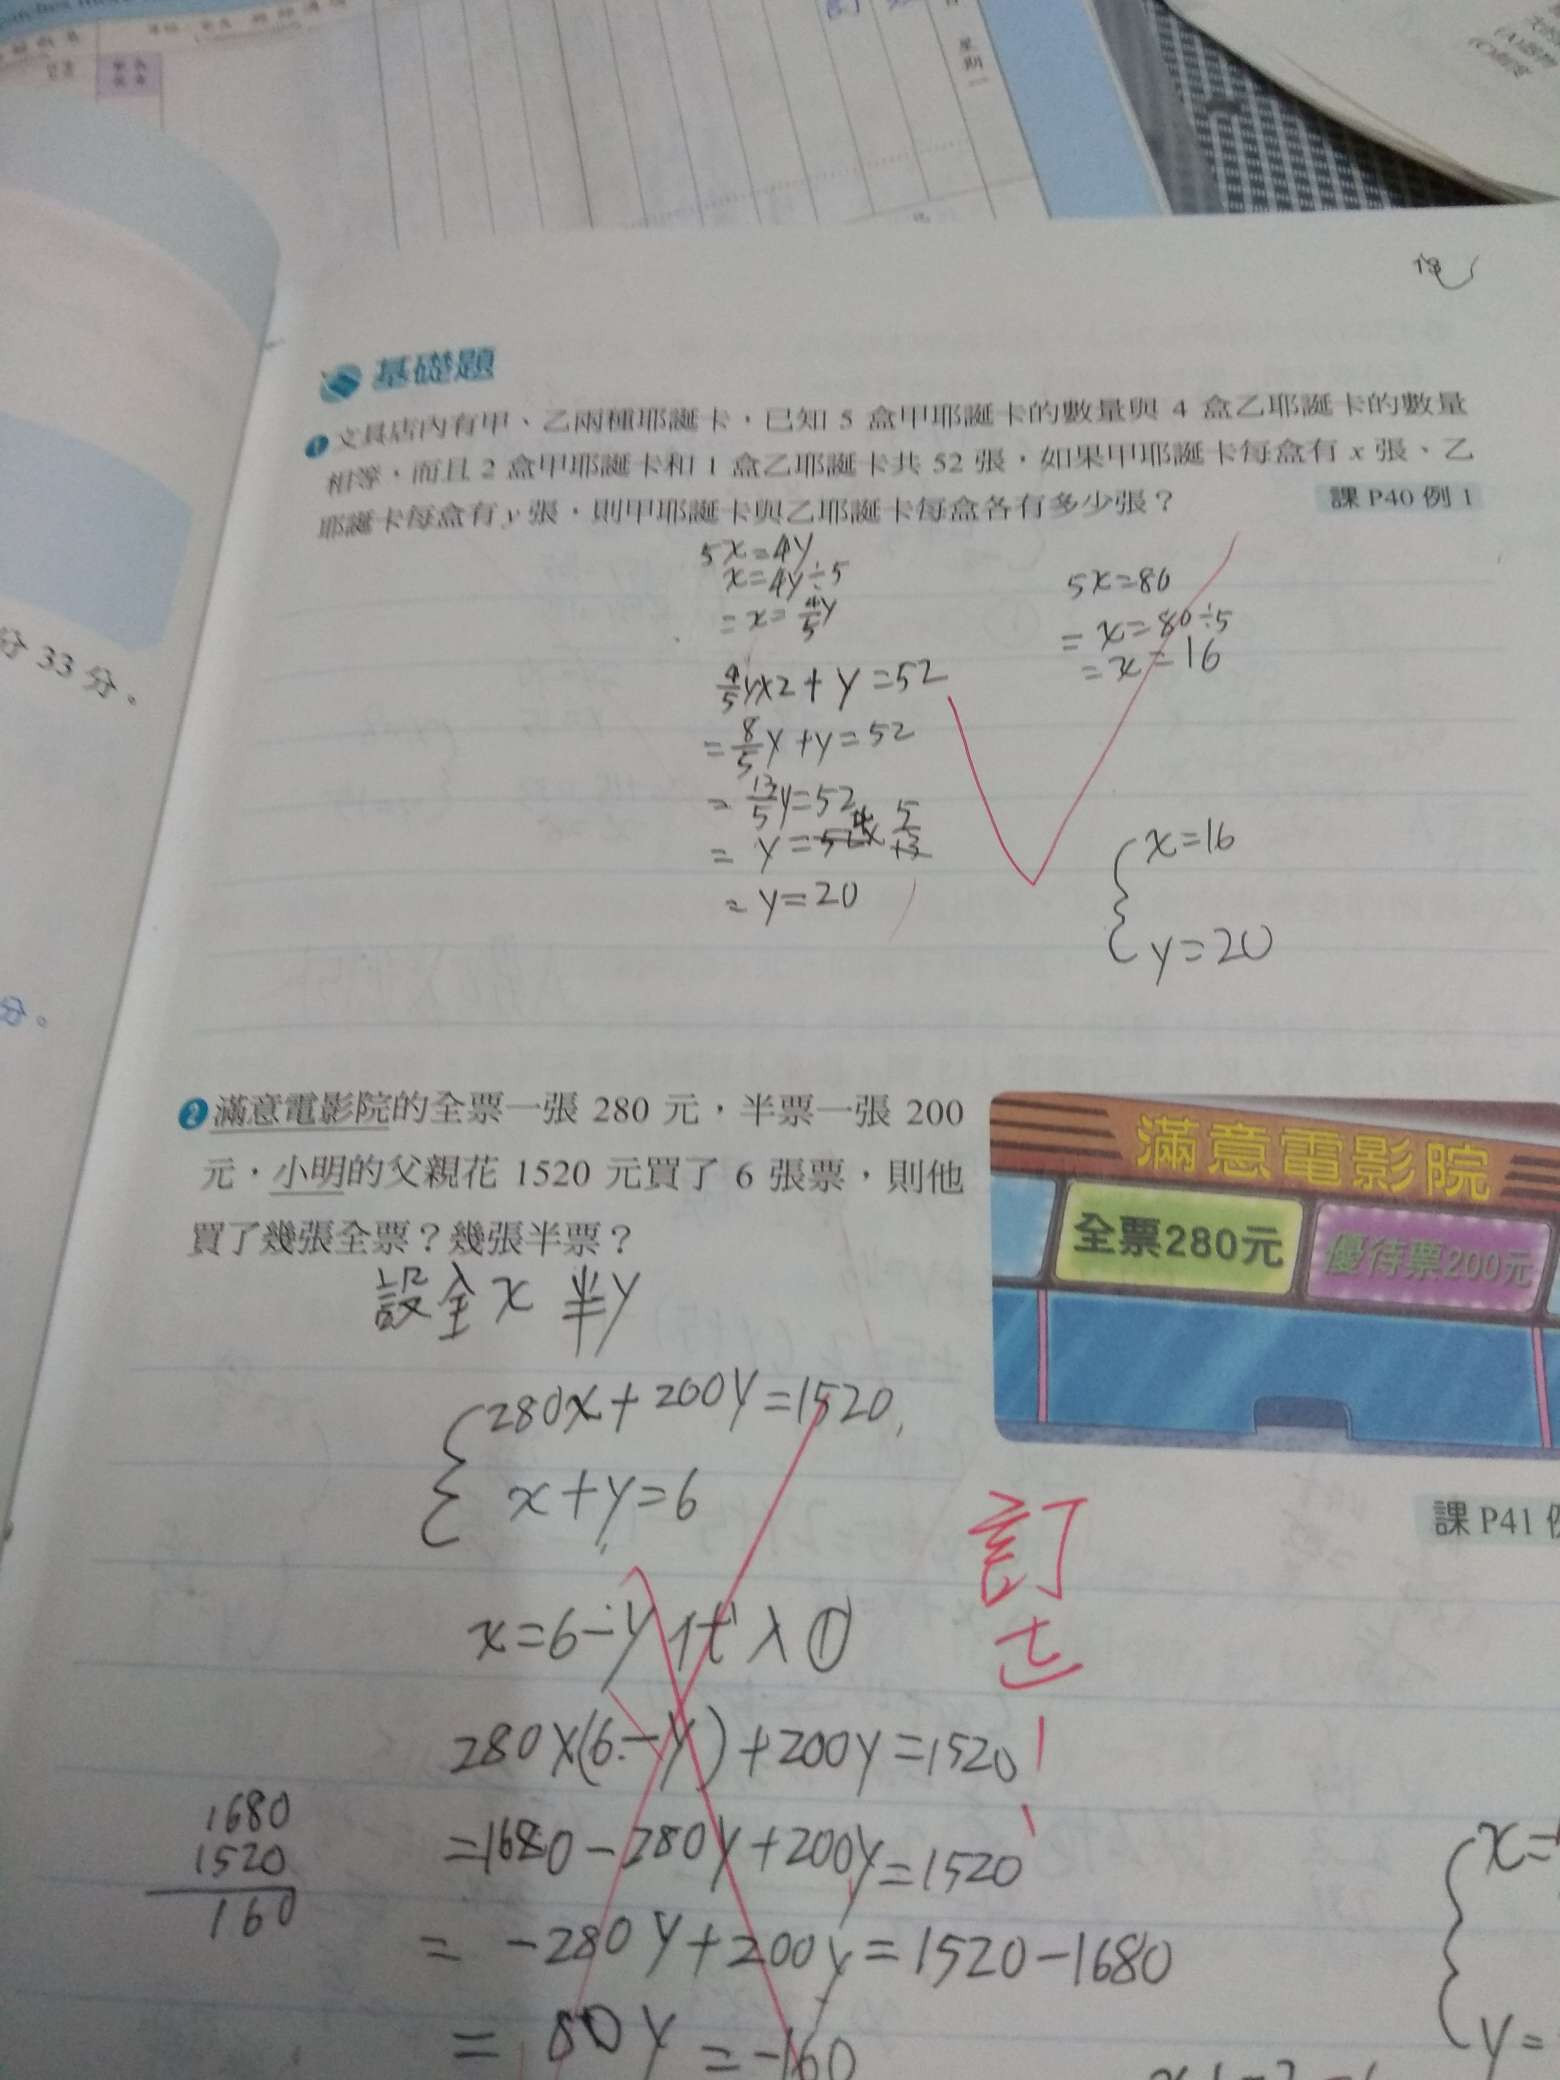 星期一
分 33 分。
分。
基礎題
1 文具店內有甲、乙兩種耶誕卡，已知 5 盒甲耶誕卡的數量與 4 盒乙耶誕卡的數量
相等，而且 2 盒甲耶誕卡和 1 盒乙耶誕卡共 52 張，如果甲耶誕卡每盒有 x 張、乙
耶誕卡每盒有 y 張，則甲耶誕卡與乙耶誕卡每盒各有多少張？
課 P40 例 1
5x=4y
x=4y÷5
=x=4/5y
4/5y×2+y=52
=8/5y+y=52
=13/5y=52
=y=52×5/13
=y=20
5x=80
=x=80÷5
=x=16
x=16
y=20
2 滿意電影院的全票一張 280 元，半票一張 200
元，小明的父親花 1520 元買了 6 張票，則他
買了幾張全票？幾張半票？
滿意電影院
全票280元
優待票200元
課 P41
設全x 半y
280x+200y=1520
x+y=6
訂
x=6-y代入①
280×(6-y)+200y=1520
=1680-280y+200y=1520
=-280y+200y=1520-1680
=80y=-160
1680
1520
160
x=
y=